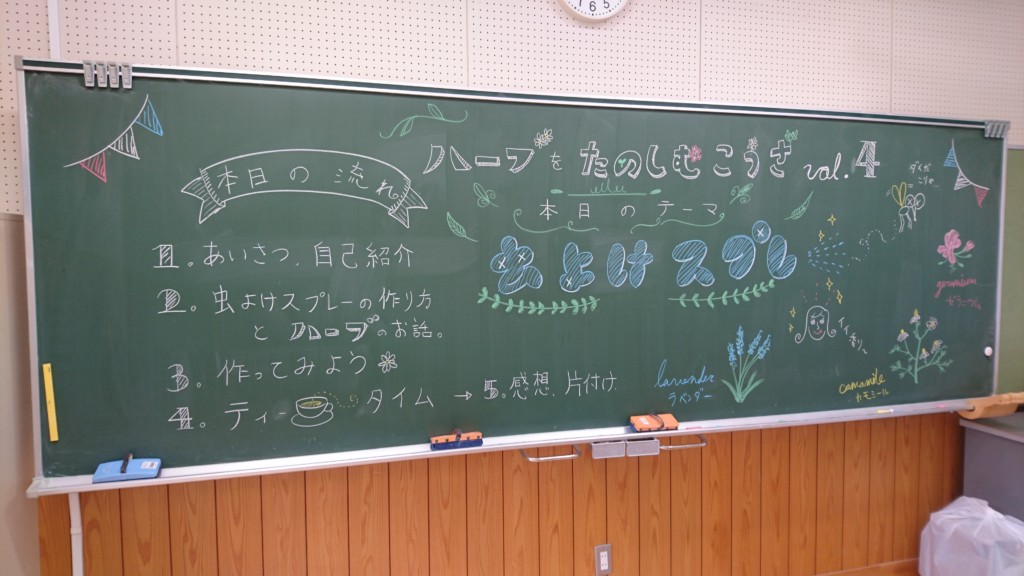 ハーブをたのしむこうざ vol.4
本日の流れ
本日のテーマ
虫よけスプレー
1. あいさつ、自己紹介
2. 虫よけスプレーの作り方
とハーブのお話。
3. 作ってみよう
4. ティータイム → 5. 感想、片付け
いい香り〜
geranium
ゼラニウム
lavender
ラベンダー
camomile
カモミール
6 5